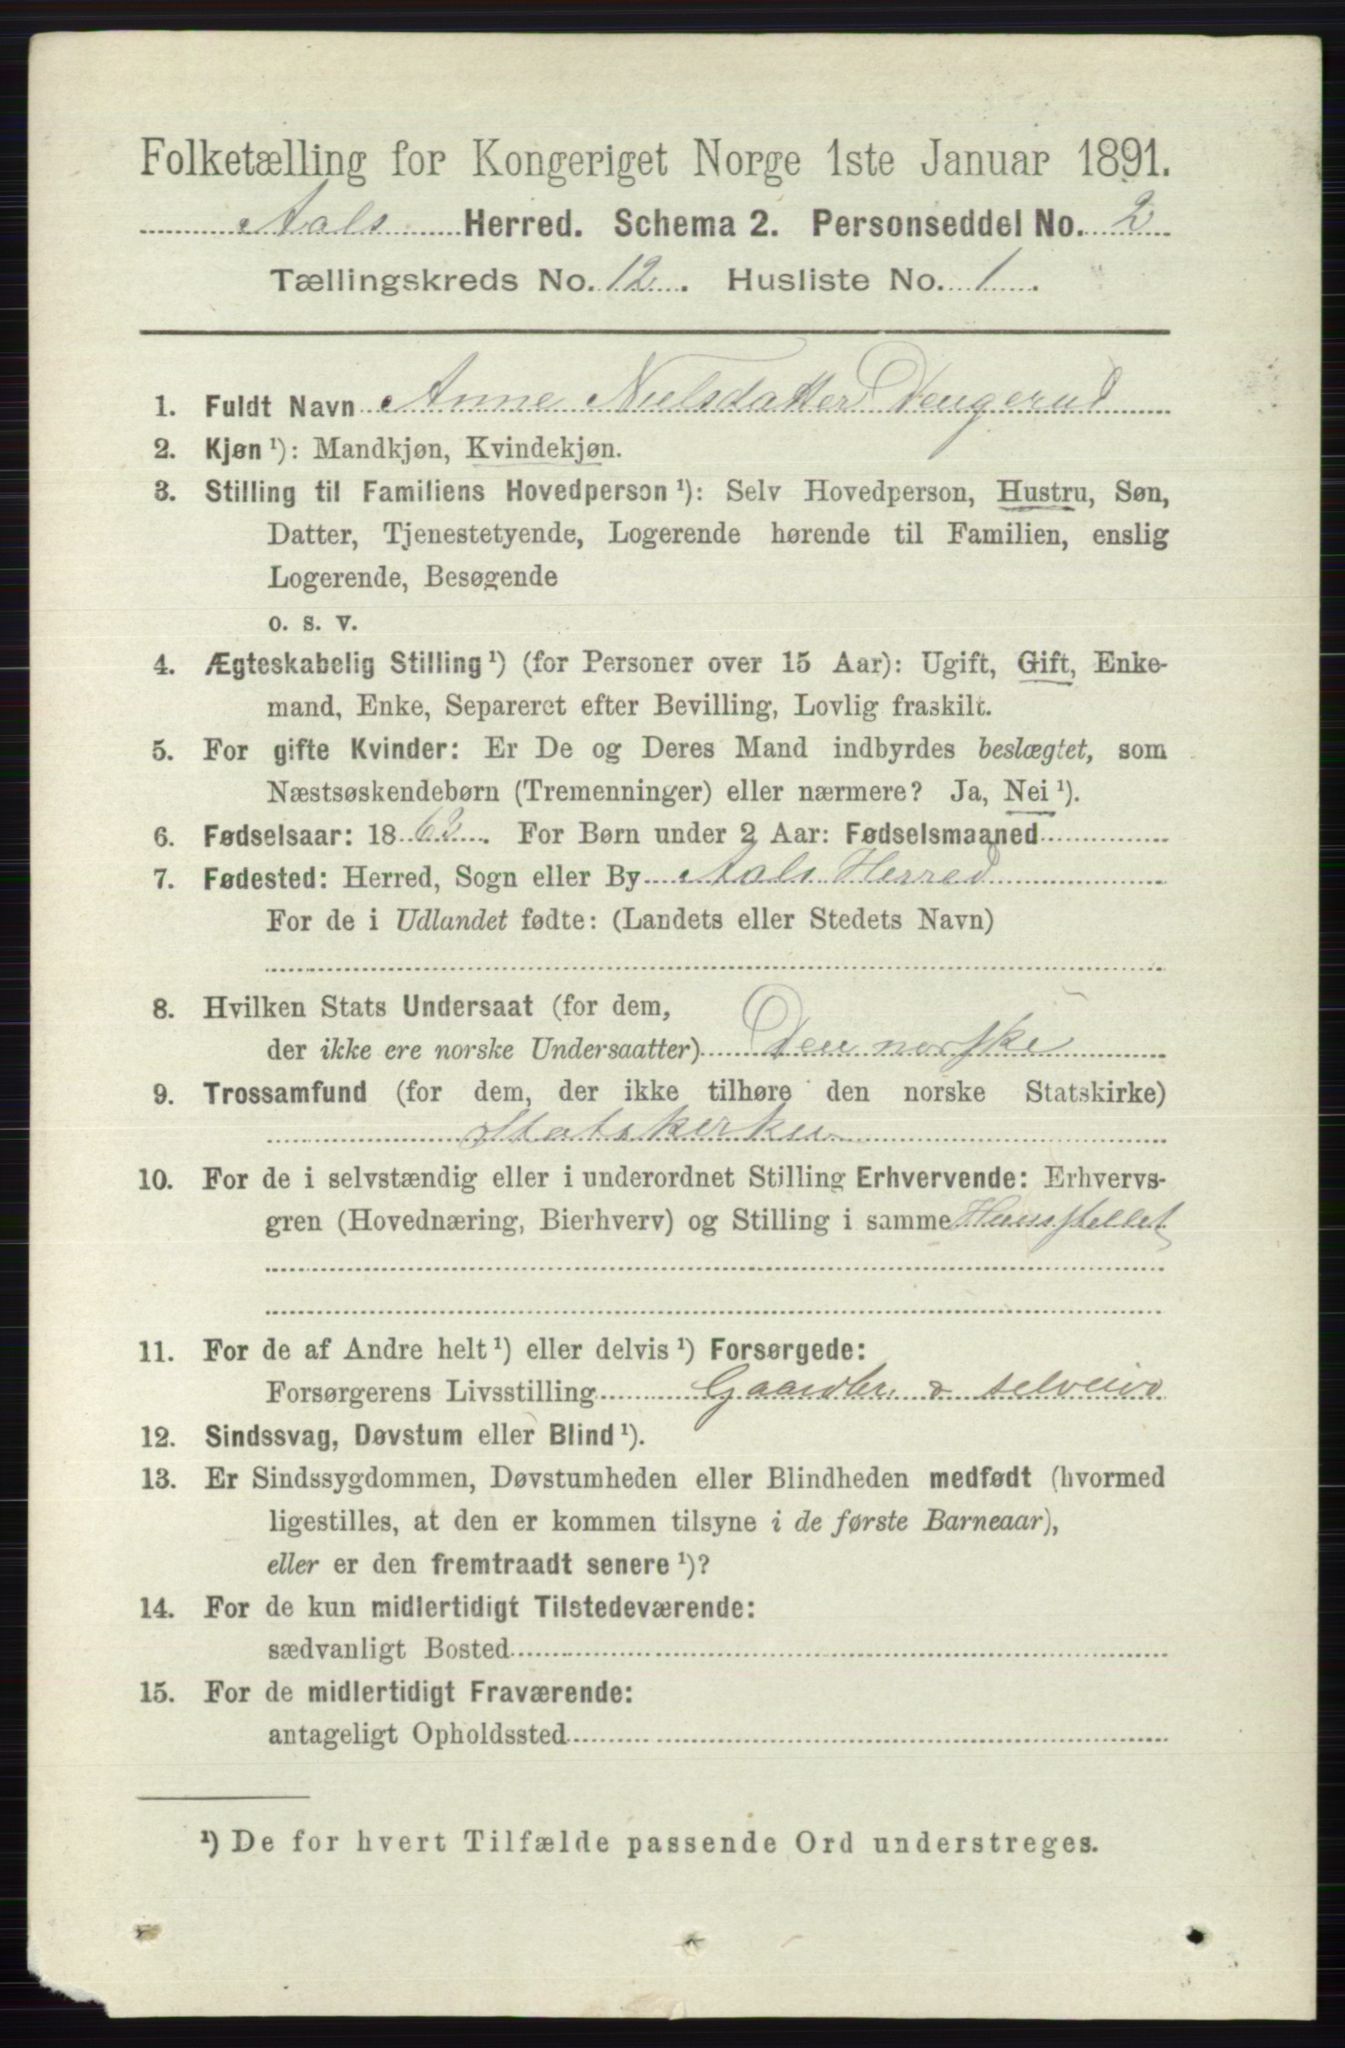 Folketælling for Kongeriget Norge 1ste Januar 1891.
Aals Herred. Schema 2. Personseddel No. 2
Tællingskreds No. 12. Husliste No. 1.
1. Fuldt Navn Anne Nielsdatter Dengerud
2. Kjøn ¹): Mandkjøn, Kvindekjøn.
3. Stilling til Familiens Hovedperson ¹): Selv Hovedperson, Hustru, Søn,
Datter, Tjenestetyende, Logerende hørende til Familien, enslig
Logerende, Besøgende
o. s. v.
4. Ægteskabelig Stilling ¹) (for Personer over 15 Aar): Ugift, Gift, Enke-
mand, Enke, Separeret efter Bevilling, Lovlig fraskilt.
5. For gifte Kvinder: Er De og Deres Mand indbyrdes beslægtet, som
Næstsøskendebørn (Tremenninger) eller nærmere? Ja, Nei ¹).
6. Fødselsaar: 1862. For Børn under 2 Aar: Fødselsmaaned
7. Fødested: Herred, Sogn eller By Aals Herred
For de i Udlandet fødte: (Landets eller Stedets Navn)
8. Hvilken Stats Undersaat (for dem,
der ikke ere norske Undersaatter) Den norske
9. Trossamfund (for dem, der ikke tilhøre den norske Statskirke)
Statskirken
10. For de i selvstændig eller i underordnet Stilling Erhvervende: Erhvervs-
gren (Hovednæring, Bierhverv) og Stilling i samme Husstellet
11. For de af Andre helt ¹) eller delvis ¹) Forsørgede:
Forsørgerens Livsstilling Gaardbr. & selveier
12. Sindssvag, Døvstum eller Blind ¹).
13. Er Sindssygdommen, Døvstumheden eller Blindheden medfødt (hvormed
ligestilles, at den er kommen tilsyne i de første Barneaar),
eller er den fremtraadt senere ¹)?
14. For de kun midlertidigt Tilstedeværende:
sædvanligt Bosted
15. For de midlertidigt Fraværende:
antageligt Opholdssted
¹) De for hvert Tilfælde passende Ord understreges.